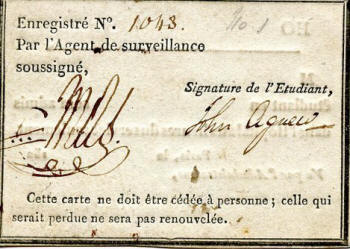 Enregistré N°. 1043. No. 1
Par l'Agent de surveillance
soussigné,
Signature de l'Etudiant,
John Agnew
Cette carte ne doit être cédée à personne ; celle qui
serait perdue ne sera pas renouvelée.